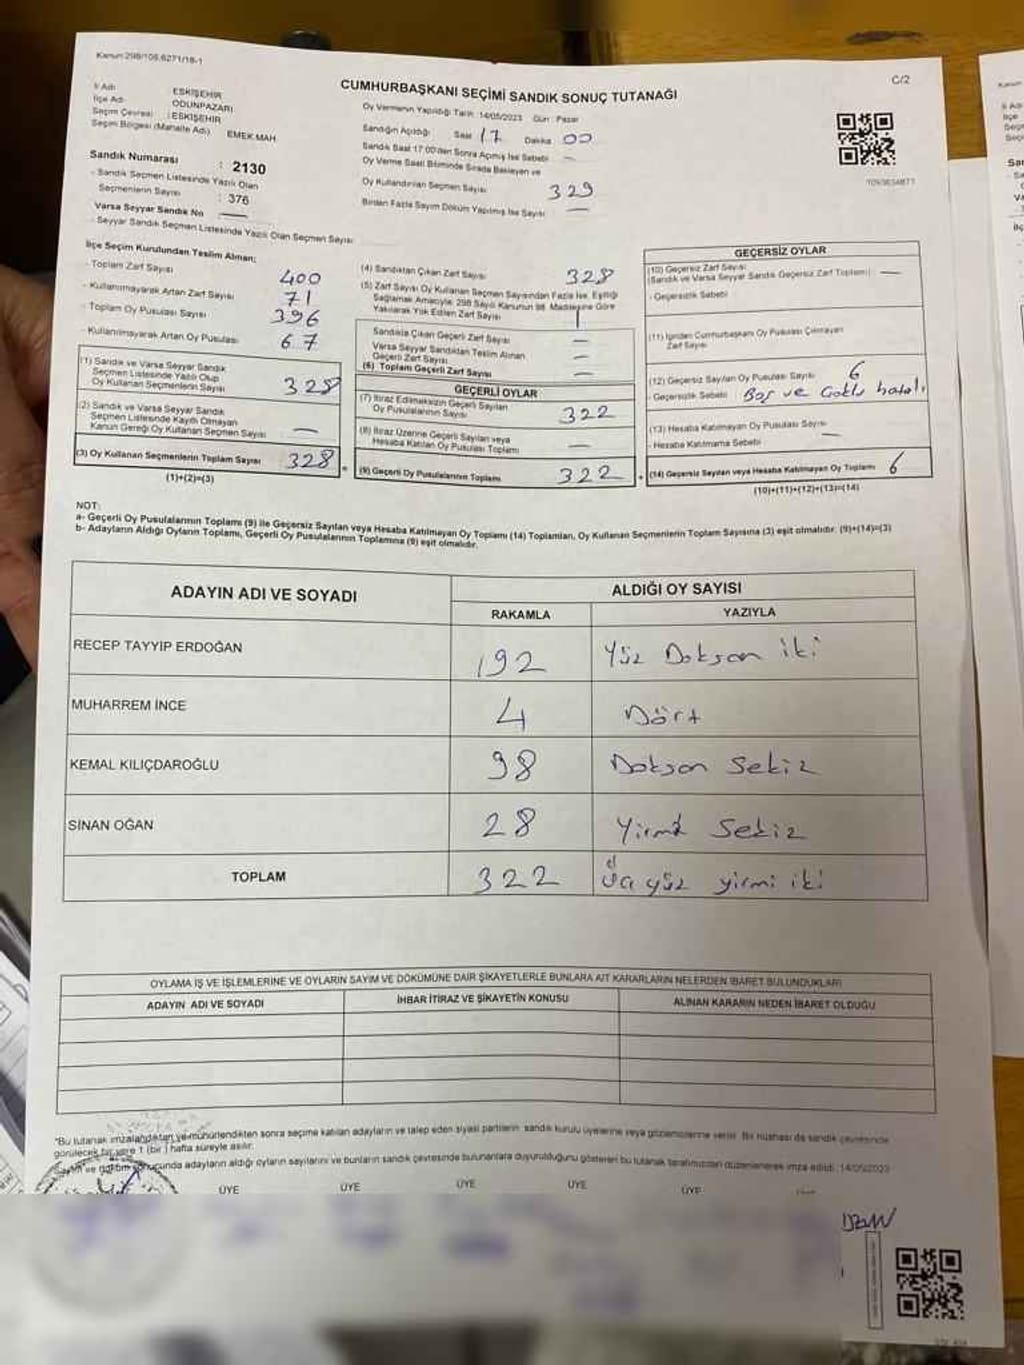 Kanun:298/105,6271/18-1
C/2
CUMHURBAŞKANI SEÇİMİ SANDIK SONUÇ TUTANAĞI
İl Adı : ESKİŞEHİR
İlçe Adı : ODUNPAZARI
Seçim Çevresi : ESKİŞEHİR
Seçim Bölgesi (Mahalle Adı) EMEK MAH
Sandık Numarası : 2130
- Sandık Seçmen Listesinde Yazılı Olan
Seçmenlerin Sayısı : 376
Varsa Seyyar Sandık No —
- Seyyar Sandık Seçmen Listesinde Yazılı Olan Seçmen Sayısı
Oy Vermenin Yapıldığı Tarih: 14/05/2023 Gün : Pazar
Sandığın Açıldığı Saat 17 Dakika 00
Sandık Saat 17:00'den Sonra Açılmış İse Sebebi —
Oy Verme Saati Bitiminde Sırada Bekleyen ve
Oy Kullandırılan Seçmen Sayısı 329
Birden Fazla Sayım Döküm Yapılmış İse Sayısı —
İlçe Seçim Kurulundan Teslim Alınan;
- Toplam Zarf Sayısı 400
- Kullanılmayarak Artan Zarf Sayısı 71
- Toplam Oy Pusulası Sayısı 396
- Kullanılmayarak Artan Oy Pusulası 67
(1) Sandık ve Varsa Seyyar Sandık
Seçmen Listesinde Yazılı Olup
Oy Kullanan Seçmenlerin Sayısı 328
(2) Sandık ve Varsa Seyyar Sandık
Seçmen Listesinde Kayıtlı Olmayan
Kanun Gereği Oy Kullanan Seçmen Sayısı —
(3) Oy Kullanan Seçmenlerin Toplam Sayısı 328
(1)+(2)=(3)
(4) Sandıktan Çıkan Zarf Sayısı 328
(5) Zarf Sayısı Oy Kullanan Seçmen Sayısından Fazla İse, Eşitliği
Sağlamak Amacıyla 298 Sayılı Kanunun 98. Maddesine Göre
Yakılarak Yok Edilen Zarf Sayısı 1
Sandıkta Çıkan Geçerli Zarf Sayısı —
Varsa Seyyar Sandıktan Teslim Alınan
Geçerli Zarf Sayısı —
(6) Toplam Geçerli Zarf Sayısı —
GEÇERLİ OYLAR
(7) İtiraz Edilmeksizin Geçerli Sayılan
Oy Pusulalarının Sayısı 322
(8) İtiraz Üzerine Geçerli Sayılan veya
Hesaba Katılan Oy Pusulası Toplamı —
(9) Geçerli Oy Pusulalarının Toplamı 322
GEÇERSİZ OYLAR
(10) Geçersiz Zarf Sayısı
(Sandık ve Varsa Seyyar Sandık Geçersiz Zarf Toplamı) —
- Geçersizlik Sebebi
(11) İçinden Cumhurbaşkanı Oy Pusulası Çıkmayan
Zarf Sayısı
(12) Geçersiz Sayılan Oy Pusulası Sayısı 6
- Geçersizlik Sebebi Boş ve Çoklu hatalı
(13) Hesaba Katılmayan Oy Pusulası Sayısı —
- Hesaba Katılmama Sebebi
(14) Geçersiz Sayılan veya Hesaba Katılmayan Oy Toplamı 6
(10)+(11)+(12)+(13)=(14)
NOT:
a- Geçerli Oy Pusulalarının Toplamı (9) ile Geçersiz Sayılan veya Hesaba Katılmayan Oy Toplamı (14) Toplamları, Oy Kullanan Seçmenlerin Toplam Sayısına (3) eşit olmalıdır. (9)+(14)=(3)
b- Adayların Aldığı Oyların Toplamı, Geçerli Oy Pusulalarının Toplamına (9) eşit olmalıdır.
ADAYIN ADI VE SOYADI
ALDIĞI OY SAYISI
RAKAMLA YAZIYLA
RECEP TAYYİP ERDOĞAN 192 Yüz Doksan iki
MUHARREM İNCE 4 Dört
KEMAL KILIÇDAROĞLU 98 Doksan Sekiz
SİNAN OĞAN 28 Yirmi Sekiz
TOPLAM 322 Üç yüz yirmi iki
OYLAMA İŞ VE İŞLEMLERİNE VE OYLARIN SAYIM VE DÖKÜMÜNE DAİR ŞİKAYETLERLE BUNLARA AİT KARARLARIN NELERDEN İBARET BULUNDUKLARI
ADAYIN ADI VE SOYADI İHBAR İTİRAZ VE ŞİKAYETİN KONUSU ALINAN KARARIN NEDEN İBARET OLDUĞU
*Bu tutanak imzalandıktan ve mühürlendikten sonra seçime katılan adayların ve talep eden siyasi partilerin sandık kurulu üyelerine veya gözlemcilerine verilir. Bir nüshası da sandık çevresinde
görülecek bir yere 1 (bir) hafta süreyle asılır.
Sayım ve döküm sonucunda adayların aldığı oyların sayılarını ve bunların sandık çevresinde bulunanlara duyurulduğunu gösteren bu tutanak tarafımızdan düzenlenerek imza edildi. 14/05/2023
ÜYE ÜYE ÜYE ÜYE ÜYE